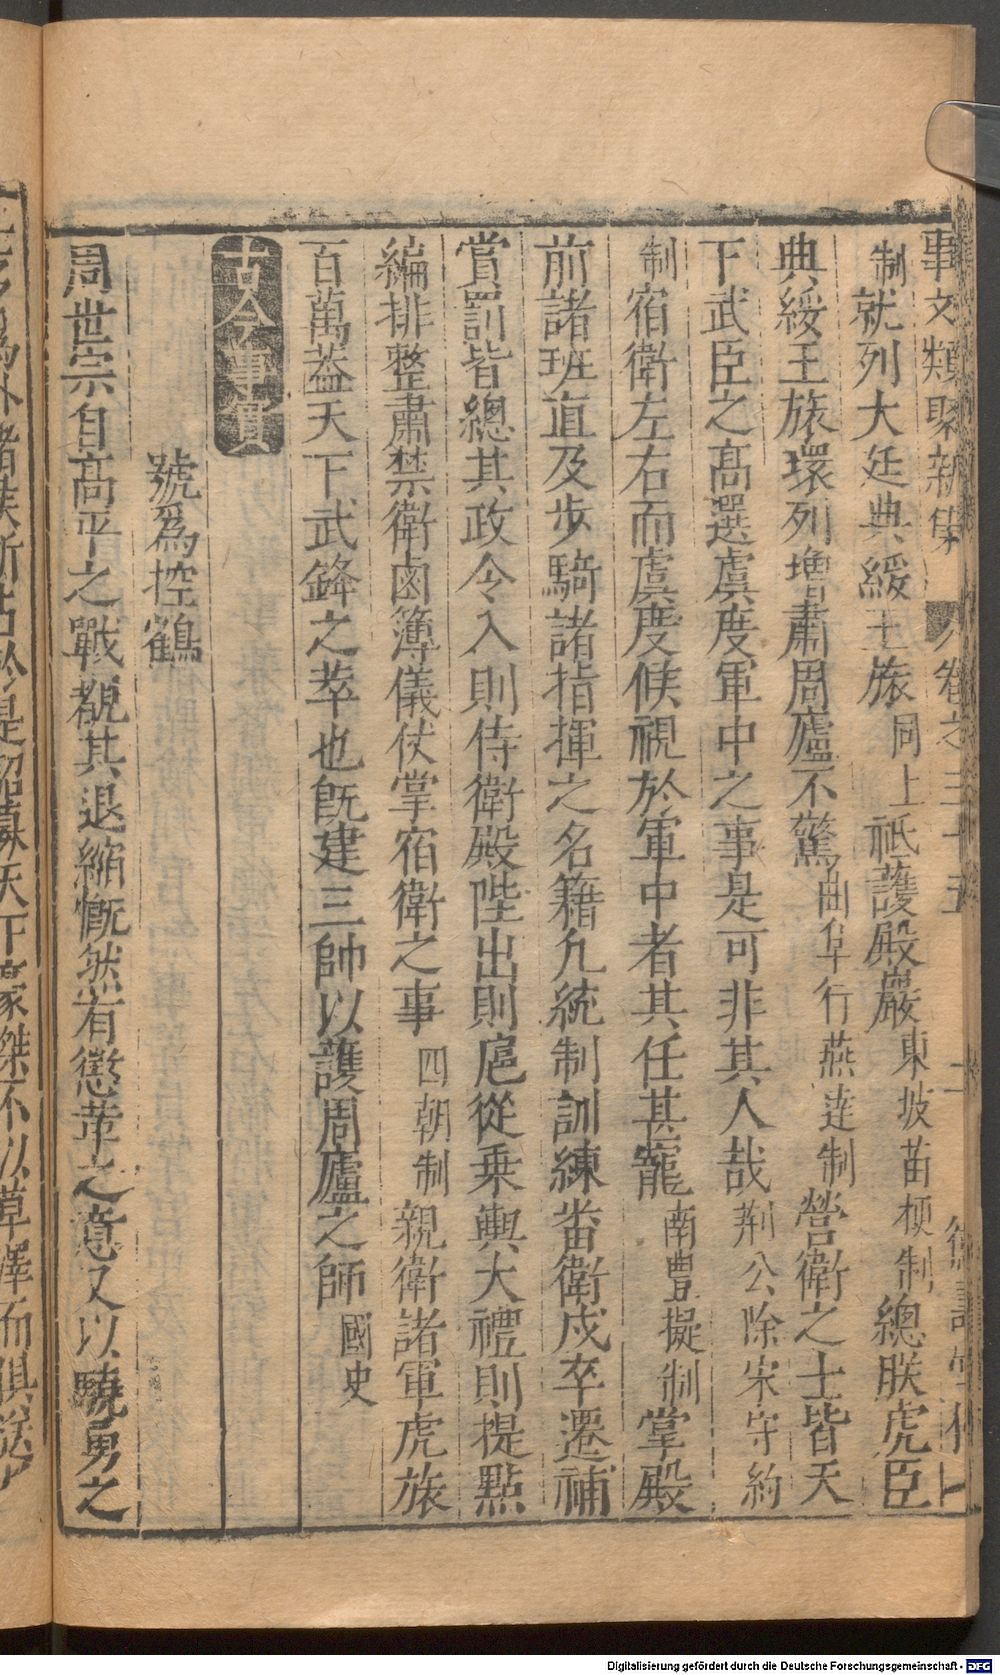 事文類聚新集 卷之三十五
制就列大廷典綏王旅同上祗護殿嚴東坡苗梗制總朕虎臣
典綏王旅環列增肅周廬不驚曲阜行燕達制營衛之士皆天
下武臣之高選虞度軍中之事是可非其人哉荆公除宋守約
制宿衛左右而虞度候視於軍中者其任甚寵南豐擬制掌殿
前諸班直及步騎諸指揮之名籍凢統制訓練畨衛戍卒遷補
賞罰皆總其政令入則侍衛殿陛出則扈從乗輿大禮則提點
編排整肅禁衛鹵簿儀仗掌宿衛之事四朝制親衛諸軍虎旅
百萬葢天下武鋒之萃也旣建三帥以護周廬之師國史
古今事實
號爲控鶴
周世宗自高平之戰覩其退縮慨然有懲革之意又以驍勇之
Digitalisierung gefördert durch die Deutsche Forschungsgemeinschaft - DFG